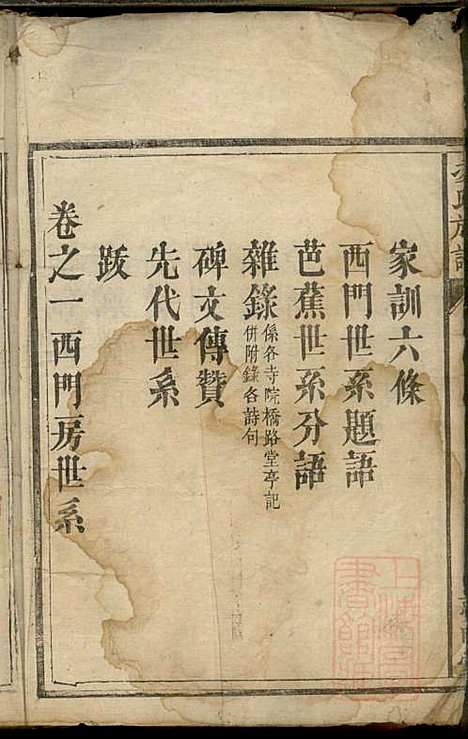 家訓六條
西門世系題語
芭蕉世系分語
雜錄係各寺院橋路堂亭記
併附錄各詩句
碑文傳贊
先代世系
跋
卷之一西門房世系